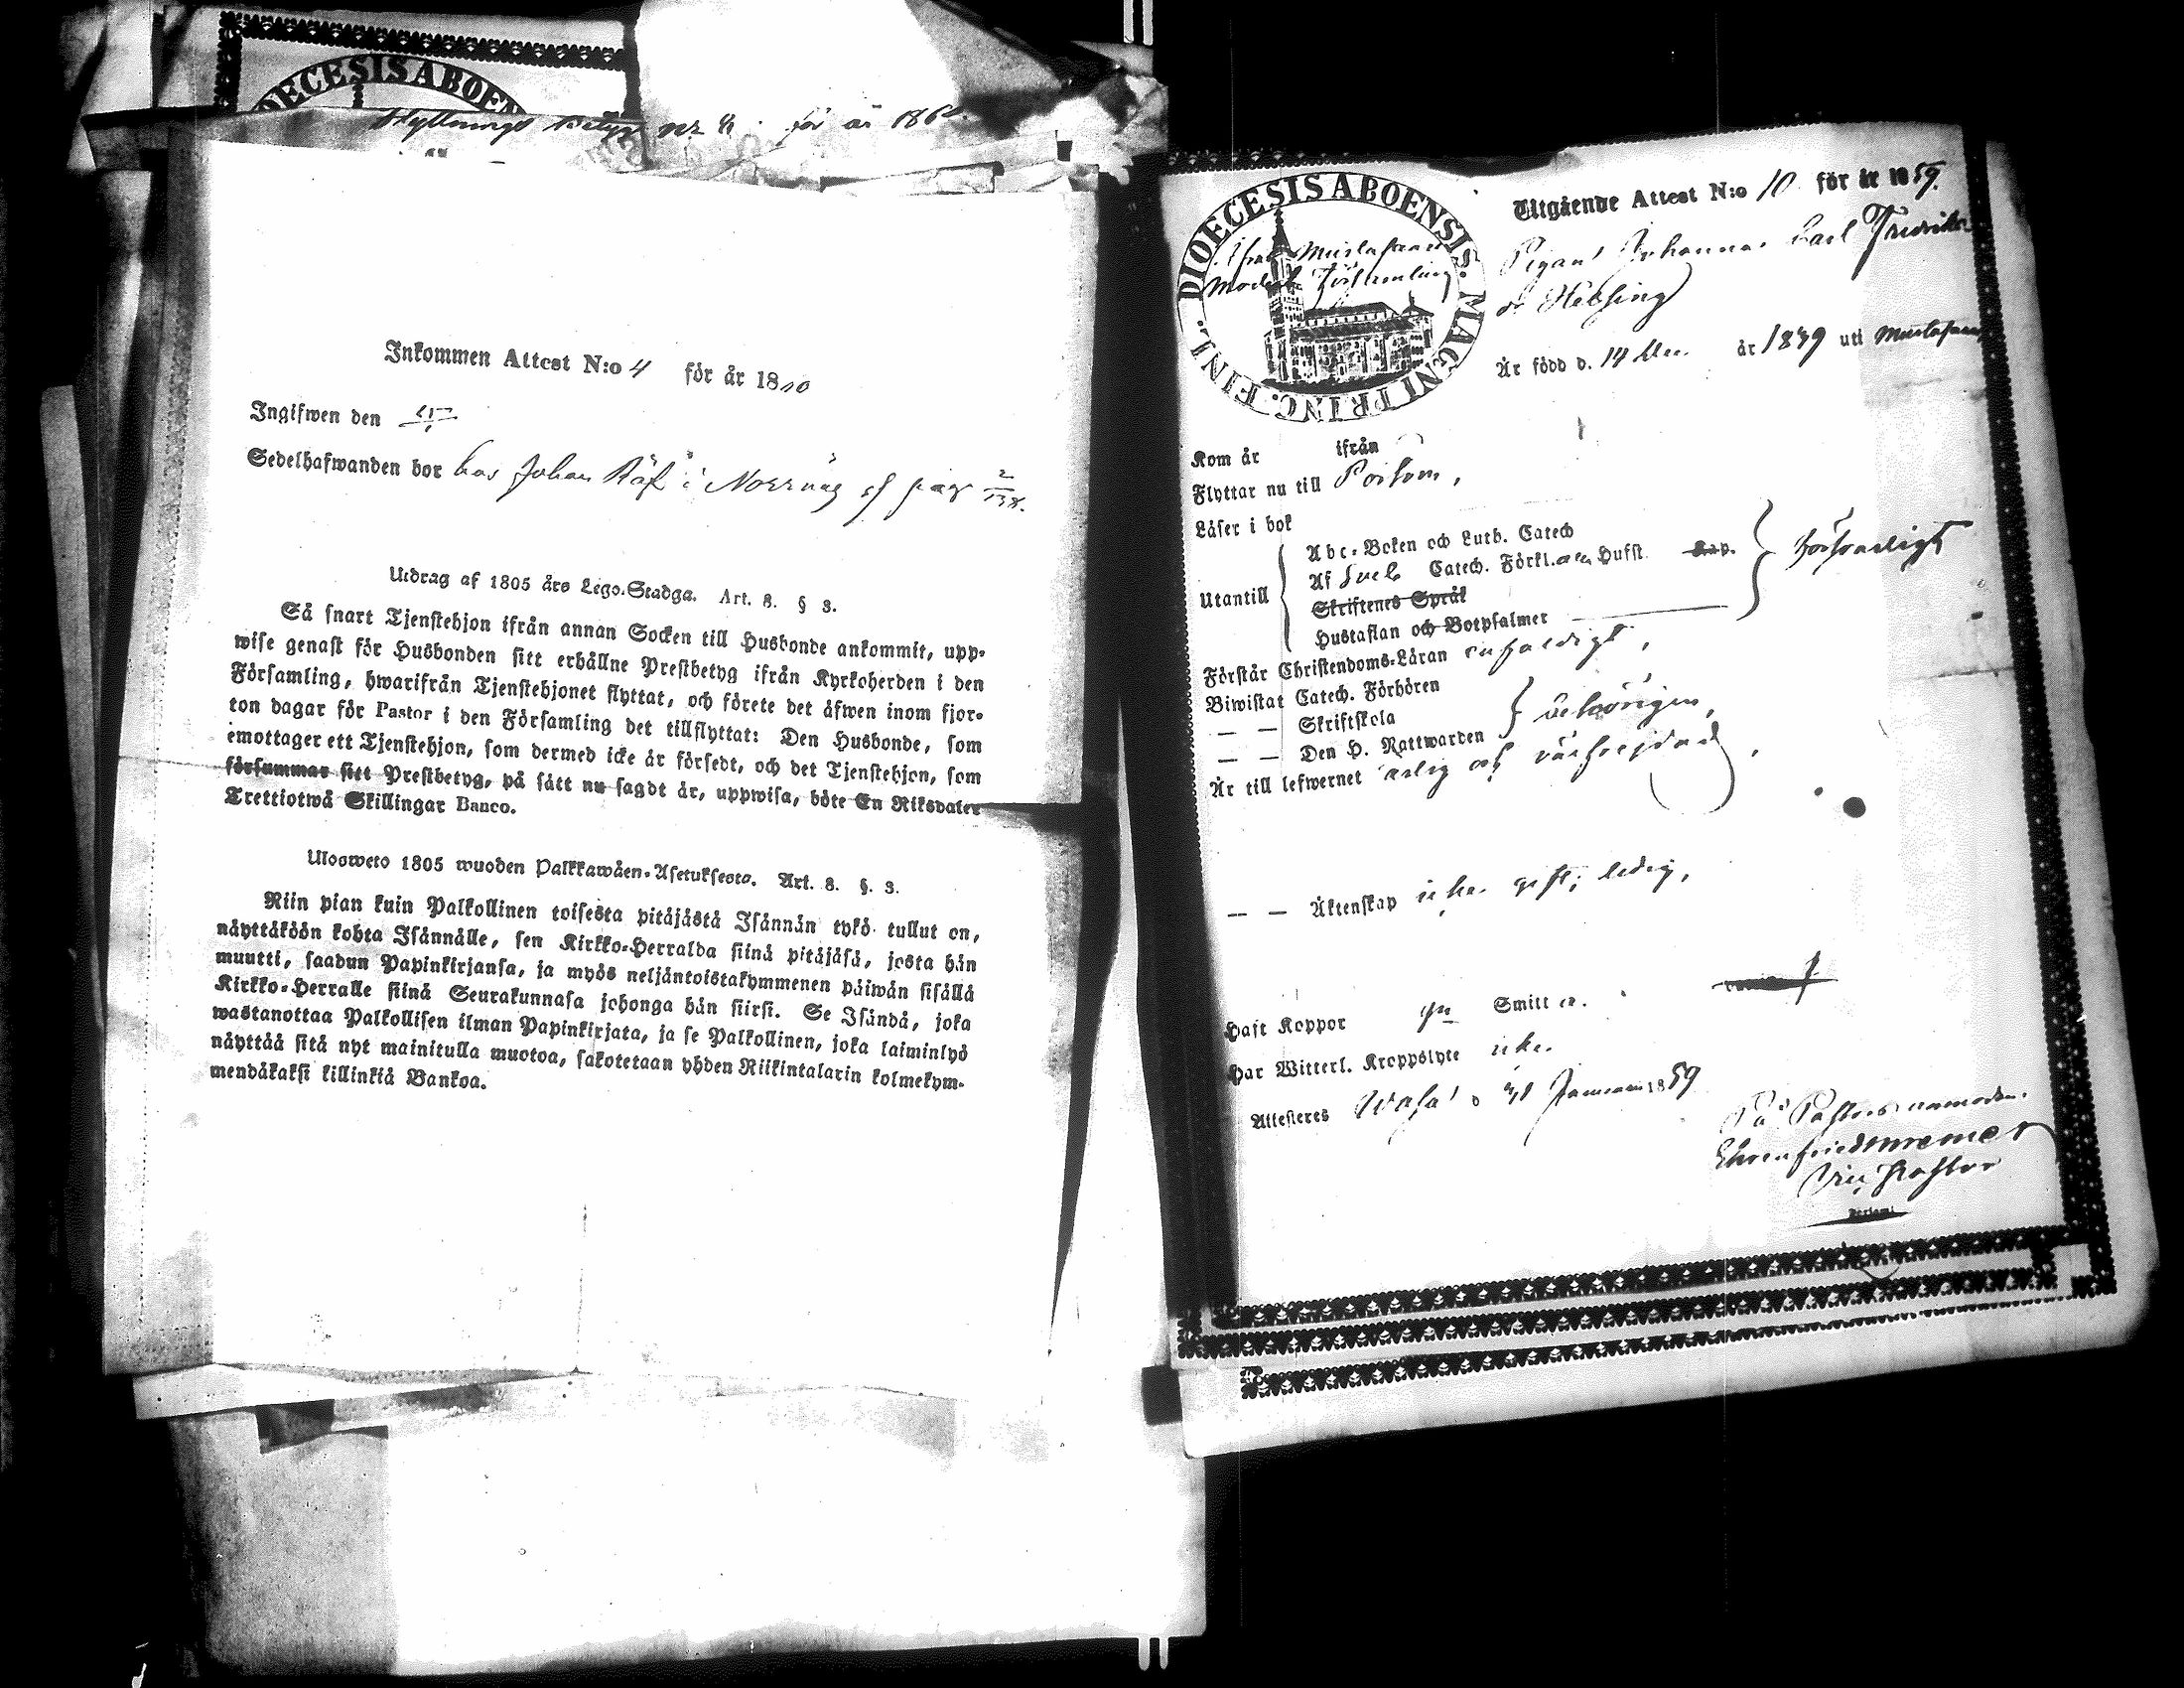 DIOECESIS ABOEN
Flyttnings Betyg för år 186
Inkommen Attest N:o 4 för år 18
Ingifwen den
Sedelhafwanden bor hos Johan i Norrnäs pag
Utdrag af 1805 års Lego-Stadga. Art. 8. § 3.
Så snart Tjenstehjon ifrån annan Socken till Husbonde ankommit, upp-
wise genast för Husbonden sitt erhållne Prestbetyg ifrån Kyrkoherden i den
Församling, hwarifrån Tjenstehjonet flyttat, och förete det äfwen inom fjor-
ton dagar för Pastor i den Församling det tillflyttat: Den Husbonde, som
emottager ett Tjenstehjon, som dermed icke är försedt, och det Tjenstehjon, som
försummar sitt Prestbetyg, på sätt nu sagdt är, uppwisa, böte En Riksdaler
Trettiotwå Skillingar Banco.
Ulosweto 1805 wuoden Palkkawäen-Asetuksesta. Art. 8. §. 3.
Niin pian kuin Palkollinen toisesta pitäjästä Isännän tykö tullut on,
näyttäköön kohta Isännälle, sen Kirkko-Herralda siinä pitäjäsä, josta hän
muutti, saadun Papinkirjansa, ja myös neljäntoistakymmenen päiwän sisällä
Kirkko-Herralle siinä Seurakunnasa johonga hän siirsi. Se Isändä, joka
wastanottaa Palkollisen ilman Papinkirjata, ja se Palkollinen, joka laiminlyö
näyttää sitä nyt mainitulla muotoa, sakotetaan yhden Riikintalarin kolmekym-
mendäkaksi killinkiä Bankoa.
DIOECESIS ABOENSIS. MAGNI PRINC. FINL.
Mustasaari
Moder Församling
Utgående Attest N:o 10 för år 1859.
Pigan Johanna Carl Fredriks
dr Helsing
Är född d. 14 Dec. år 1839 uti Mustasaari
Kom år ifrån
Flyttar nu till Pörtom,
Läser i bok
Utantill
Abc-Boken och Luth. Catech
Af Sveb Catech. Förkl. Husfl. Kap.
försvarligt
Skriftenes Språk
Hustaflan och Botpsalmer
Förstår Christendoms-Läran enfaldigt,
Biwistat Catech. Förhören
— — Skriftskola
behörigen,
— — Den H. Nattwarden
Är till lefwernet ärlig och väl frejdad,
— — Äktenskap icke gift; ledig,
Haft Koppor Smitt
Har Witterl. Kroppslyte icke.
Attesteres Wasa d 31 Januari 1859
På Pastors anmodan.
Vice Pastor